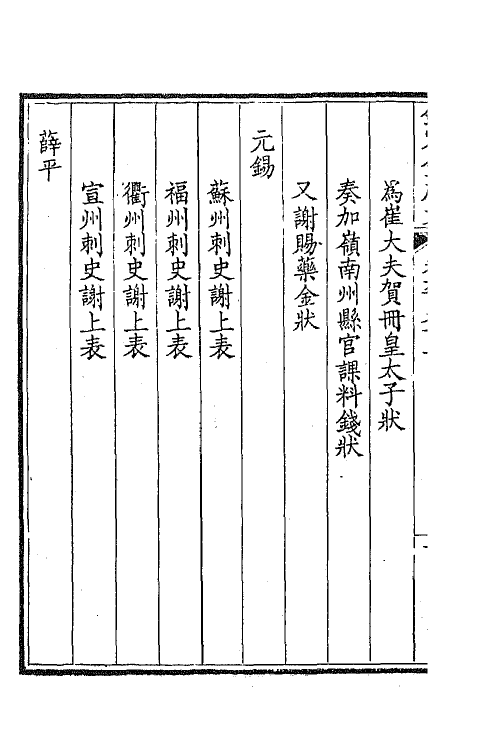 為崔大夫賀冊皇太子狀
奏加嶺南州縣官課料錢狀
又謝賜藥金狀
元錫
蘇州刺史謝上表
福州刺史謝上表
衢州刺史謝上表
宣州刺史謝上表
薛平